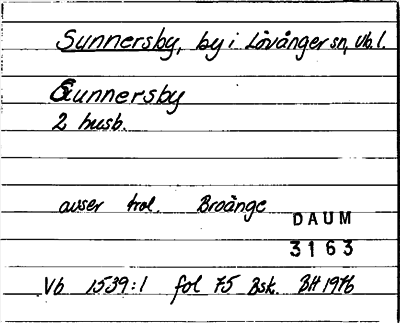 Sunnersby, by i Lövånger sn, Vb. l.
Sunnersby
2 husb.
avser trol. Broänge
DAUM
3163
Vb 1539:1 fol 75 Bsk. BH 1976